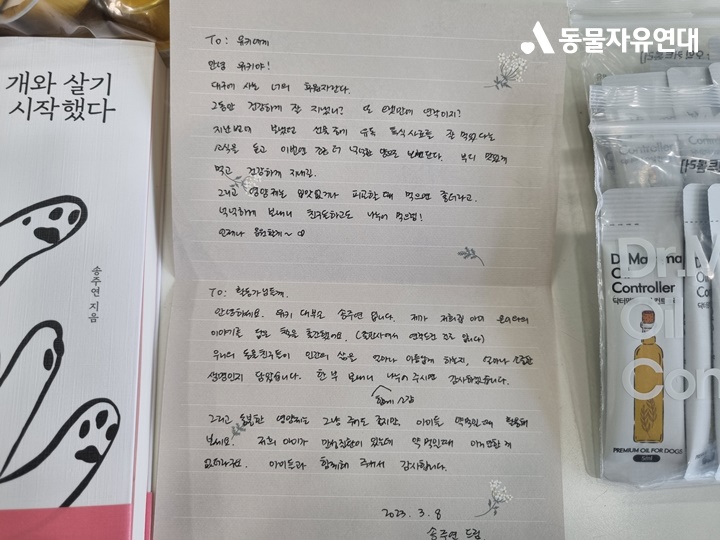 동물자유연대
개와 살기
시작했다
송주연 지음
To: 유키에게
안녕 유키야!
대구에 사는 너의 파워자간다.
그동안 건강하게 잘 지냈니? 또 오랜만에 연락이지?
지난번에 보냈던 선물 중에 유동 습식사료를 잘 먹었다는
소식을 듣고 이번엔 조금 더 넉넉한 양으로 보낸단다. 부디 맛있게
먹고 건강하게 지내길.
그리고 영양제는 입맛없거나 피곤할 때 먹으면 좋더라고.
넉넉하게 보내니 친구들하고도 나누어 먹으렴!
언제나 응원할게~
To: 활동가님들께.
안녕하세요. 유키 대부모 송주연 입니다. 제가 저희집 아이
이야기를 담은 책을 출간했어요. (출판사에서 연락드린 걸로 압니다)
우리의 동물친구들이 인간의 삶을 얼마나 아름답게 하는지, 얼마나 소중한
생명인지 담았습니다. 한 부 보내니 나누어 주시면 감사하겠습니다.
함께
그리고 동봉한 영양제는 그냥 줘도 좋지만, 아이들 약먹일때 활용해
보세요. 저희 아이가 만성질환이 있는데 약 먹일때 이거만한 게
없더라구요. 아이들과 함께해 주셔서 감사합니다.
2023. 3. 8
송주연 드림
Controller
Dr.Ma
Oil
Controller
PREMIUM OIL FOR DOGS
5ml
Dr.
Oil
Con